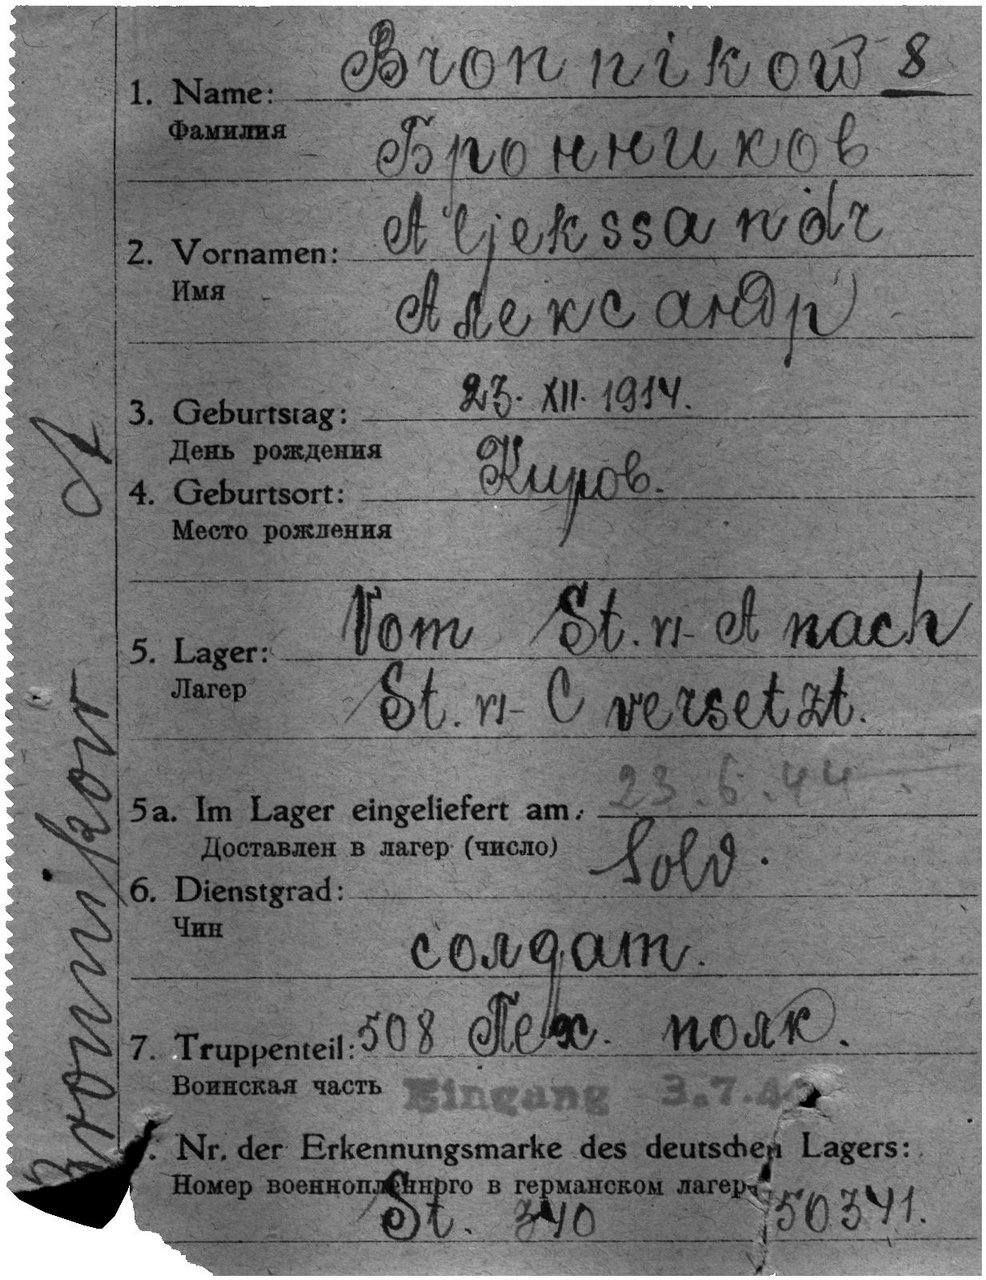 Bronnikow 8
1. Name:
Фамилия
Бронников
Aljekssandr
2. Vornamen:
Имя
Александр
3. Geburtstag: 23. XII. 1914.
День рождения
4. Geburtsort: Киров.
Место рождения
Vom St. VI-A nach
5. Lager:
Лагер
St. VI-C versetzt.
5a. Im Lager eingeliefert am: 23.6.44
Доставлен в лагер (число)
6. Dienstgrad: Sold.
Чин
солдат.
7. Truppenteil: 508 Пех. полк.
Воинская часть Eingang 3.7.44
. Nr. der Erkennungsmarke des deutschen Lagers:
Номер военнопленнрго в германском лагере
St. 340 50341.
Bronnikov A